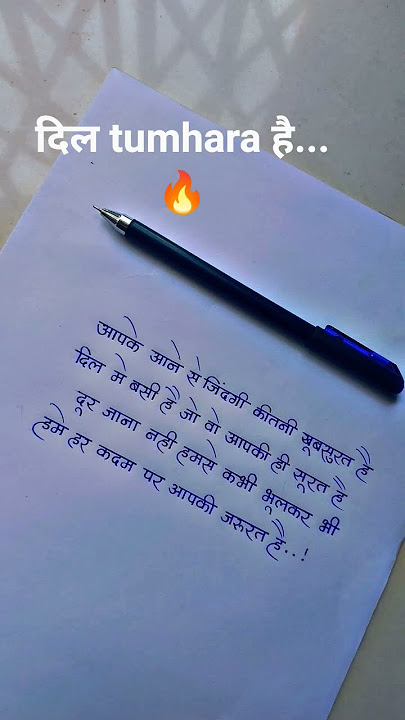 दिल tumhara है...
🔥
आपके आने से जिंदगी कीतनी खूबसुरत है
दिल मे बसी है जो वो आपकी ही सूरत है
दूर जाना नही हमसे कभी भूलकर भी
हमे हर कदम पर आपकी जरूरत है..!